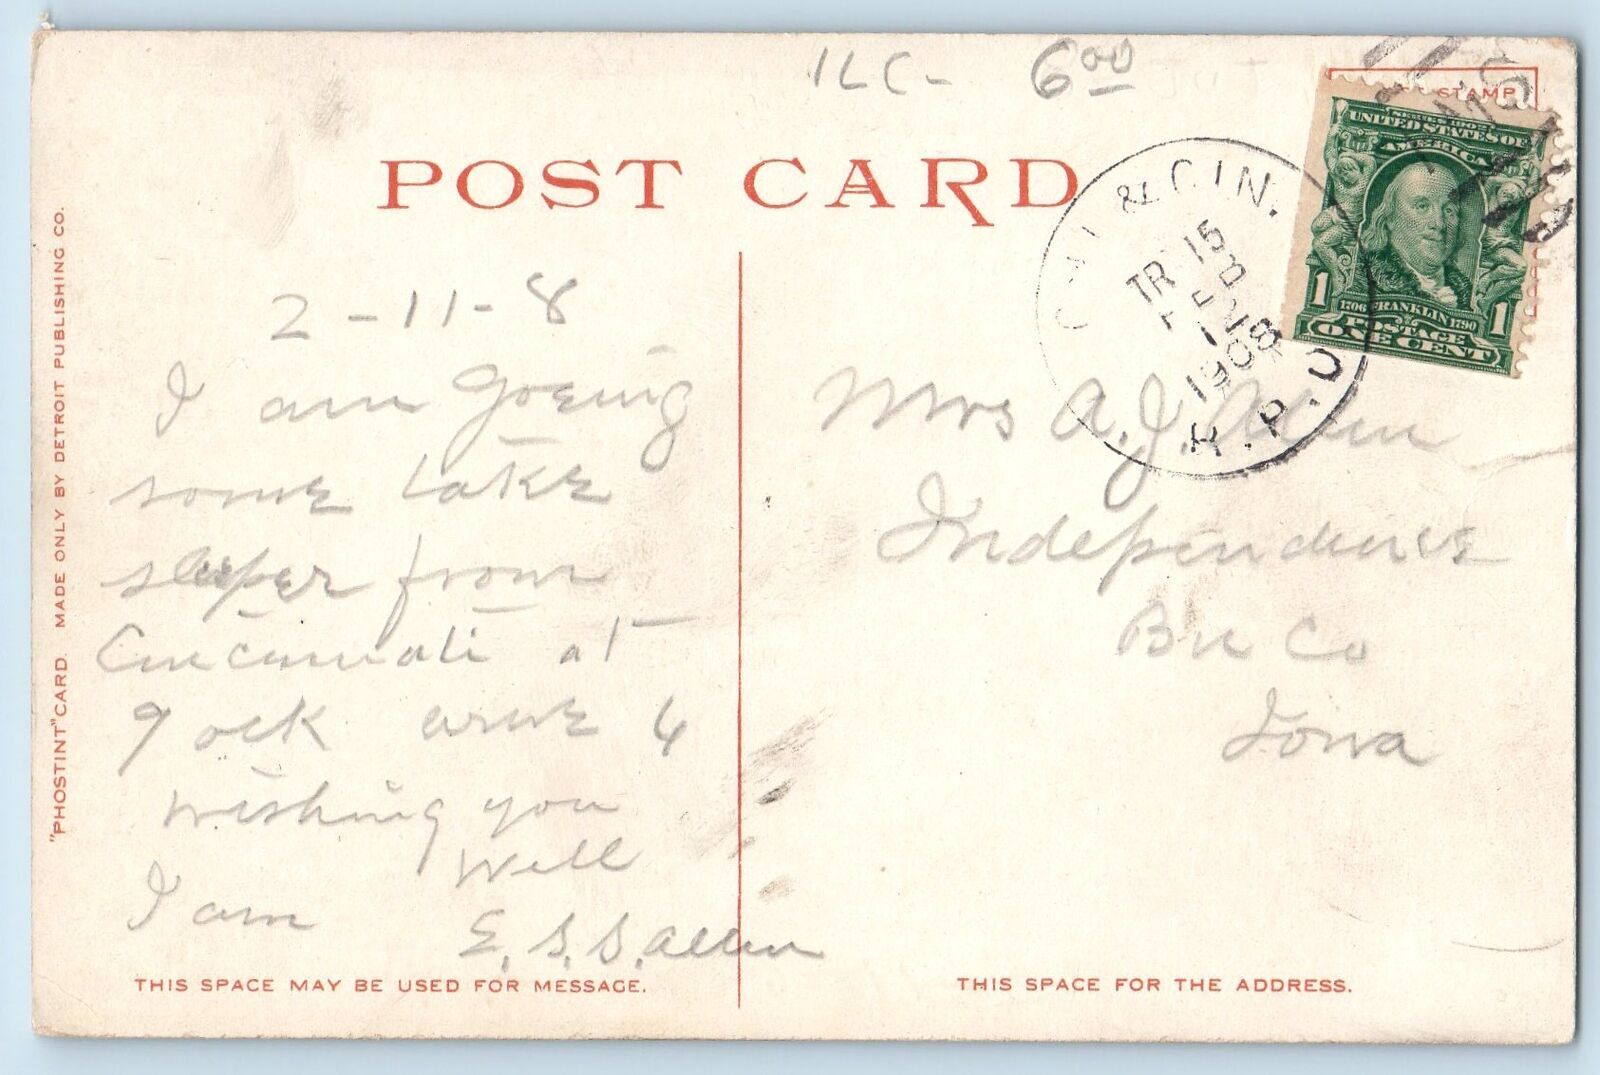 ILC- 6 00
POST CARD
STAMP
SERIES 1902
UNITED STATES OF
AMERICA
1706 FRANKLIN 1790
1 POSTAGE 1
ONE CENT
CHI & CIN.
TR 15
FEB
1908
R.P.O
2-11-8
I am goeing
some take
sleeper from
Cincinnati at
9 ock
wishing you
well
I am
E. S. S. Allen
Mrs A. J. Allen
Independence
Co
Iowa
"PHOSTINT" CARD. MADE ONLY BY DETROIT PUBLISHING CO.
THIS SPACE MAY BE USED FOR MESSAGE.
THIS SPACE FOR THE ADDRESS.